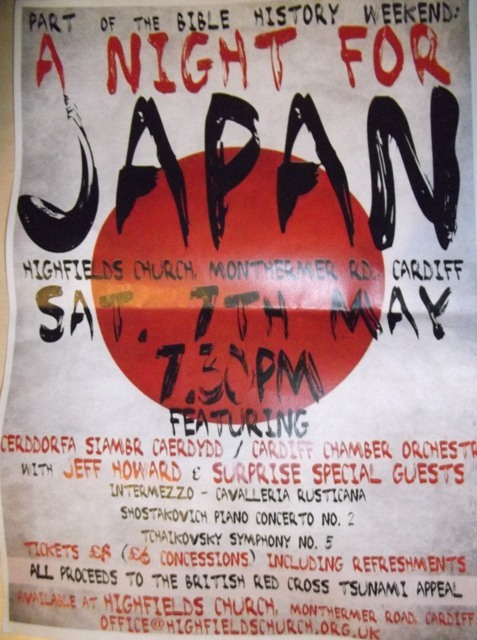 PART OF THE BIBLE HISTORY WEEKEND:
A NIGHT FOR
JAPAN
HIGHFIELDS CHURCH, MONTHERMER RD., CARDIFF
SAT. 7TH MAY
7.30PM
FEATURING
CERDDORFA SIAMBR CAERDYDD / CARDIFF CHAMBER ORCHESTR
WITH JEFF HOWARD & SURPRISE SPECIAL GUESTS
INTERMEZZO - CAVALLERIA RUSTICANA
SHOSTAKOVICH PIANO CONCERTO NO. 2
TCHAIKOVSKY SYMPHONY NO. 5
TICKETS £8 (£6 CONCESSIONS) INCLUDING REFRESHMENTS
ALL PROCEEDS TO THE BRITISH RED CROSS TSUNAMI APPEAL
AVAILABLE AT HIGHFIELDS CHURCH, MONTHERMER ROAD, CARDIFF
OFFICE@HIGHFIELDSCHURCH.ORG.UK